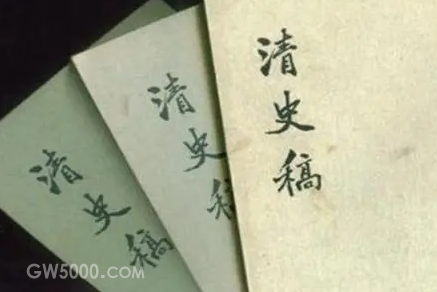 清史稿
清史稿
清史稿
GW5000.COM